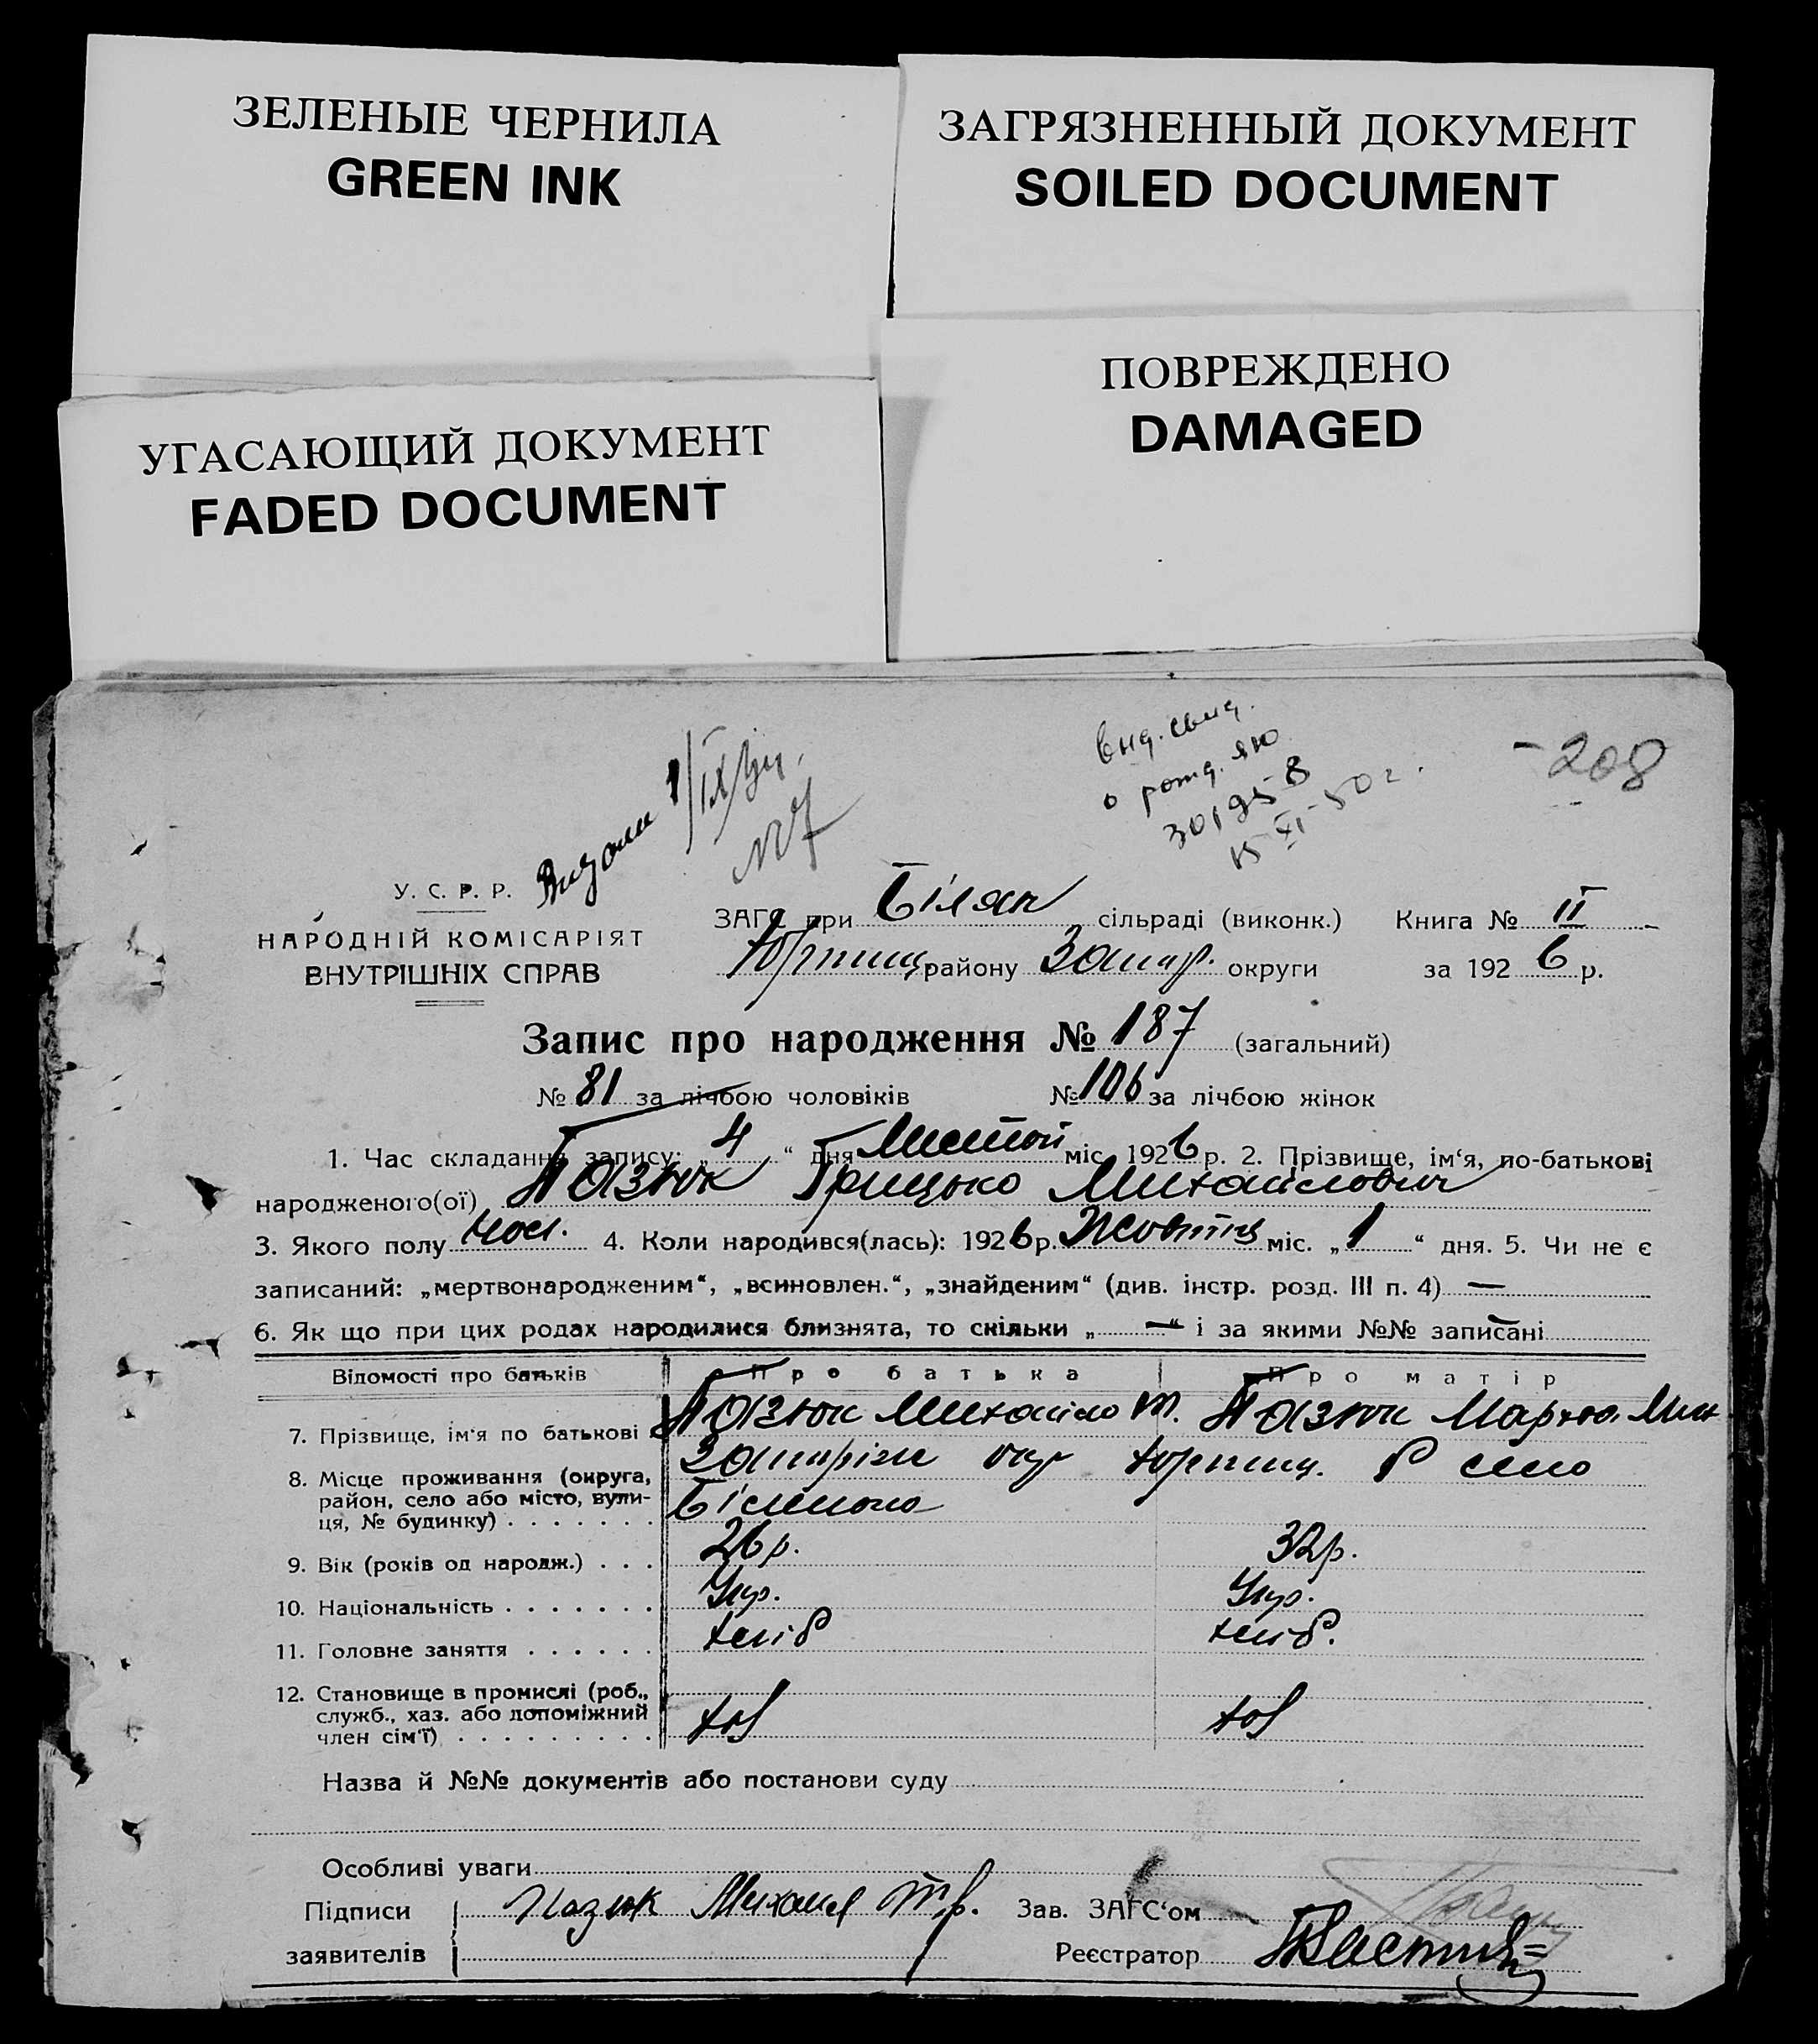 ЗЕЛЕНЫЕ ЧЕРНИЛА
GREEN INK
ЗАГРЯЗНЕННЫЙ ДОКУМЕНТ
SOILED DOCUMENT
УГАСАЮЩИЙ ДОКУМЕНТ
FADED DOCUMENT
ПОВРЕЖДЕНО
DAMAGED
Видали 1/IX
№7
Выд. свид.
о рожд. ЯЮ
XI-50 г.
-208
У. С. Р. Р.
НАРОДНІЙ КОМІСАРІЯТ
ВНУТРІШНІХ СПРАВ
ЗАГС при Білян сільраді (виконк.) Книга № II
Хортиц району Запор. округи за 1926 р.
Запис про народження № 187 (загальний)
№ 81 за лічбою чоловіків № 106 за лічбою жінок
1. Час складання запису: „4“ дня міс. 1926 р. 2. Прізвище, ім‘я, по-батькові
народженого(ої) Пазюк Грицько Михайлович
3. Якого полу чол. 4. Коли народився(лась): 1926 р. міс. „1“ дня. 5. Чи не є
записаний: „мертвонародженим“, „всиновлен.“, „знайденим“ (див. інстр. розд. III п. 4) —
6. Як що при цих родах народилися близнята, то скільки „—“ і за якими №№ записані —
Відомості про батьків Про батька Про матір
7. Прізвище, ім‘я по батькові Пазюк Михайло Т. Пазюк Марфа Мих
8. Місце проживання (округа, район, село або місто, вулиця, № будинку) Запоріж окр Хортиц. Р село
9. Вік (років од народж.) 26 р. 32 р.
10. Національність Укр. Укр.
11. Головне заняття хліб хліб.
12. Становище в промислі (роб., служб., хаз. або допоміжний член сім‘ї) хаз хаз
Назва й №№ документів або постанови суду
Особливі уваги
Підписи заявителів Пазюк Михаил Зав. ЗАГС‘ом
Реєстратор